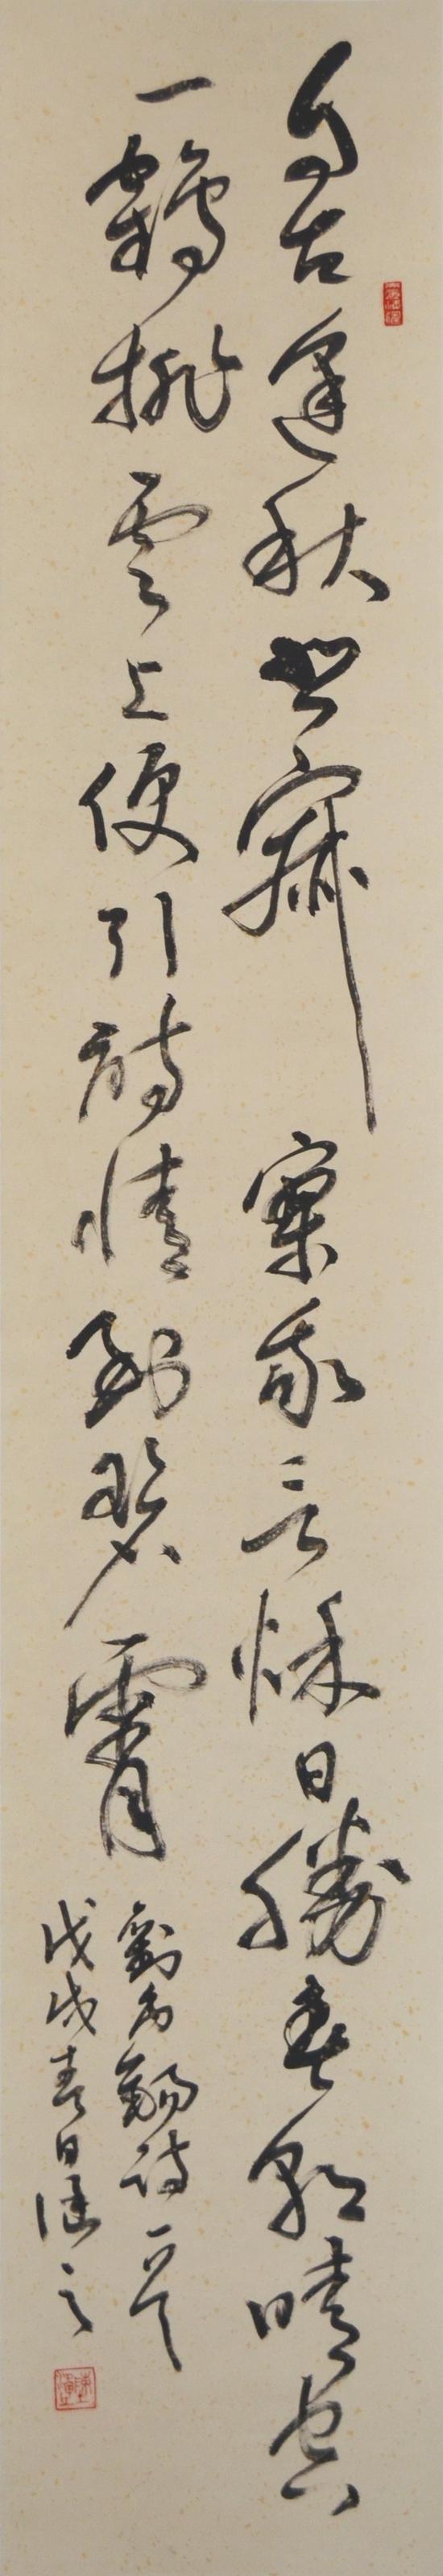 自古逢秋悲寂寥我言秋日勝春朝晴空
一鶴排雲上便引詩情到碧霄
劉禹錫詩一首
戊戌春日 之